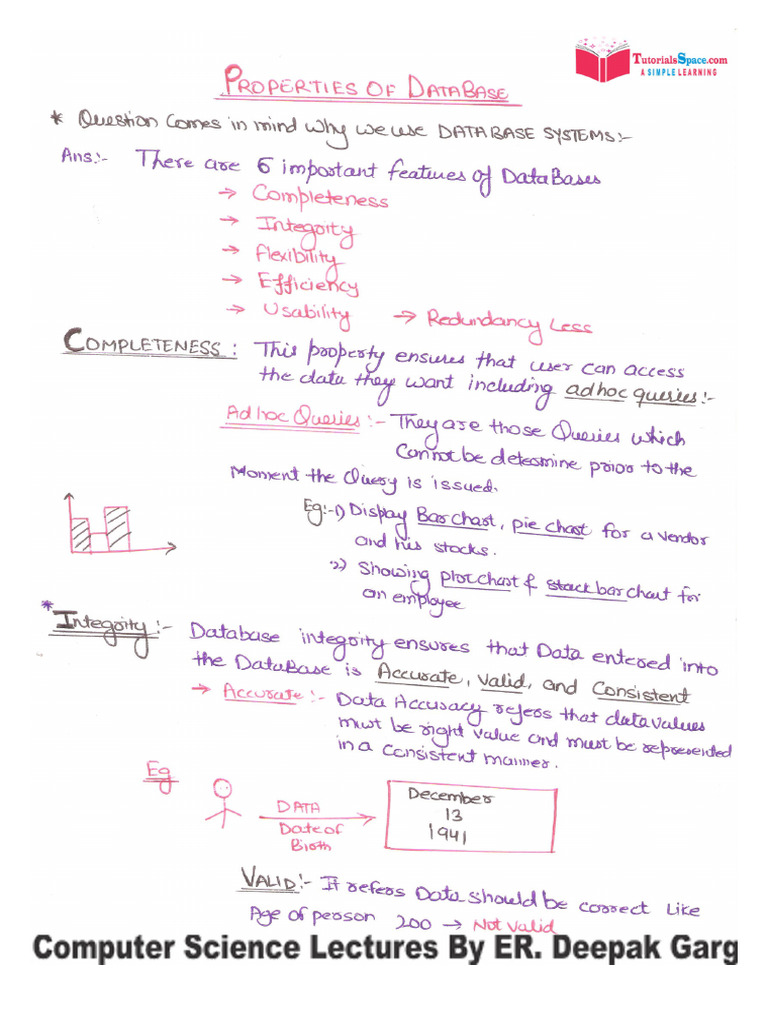 TutorialsSpace.com
A SIMPLE LEARNING
PROPERTIES OF DATABASE
* Question Comes in mind why we use DATABASE SYSTEMS:-
Ans:- There are 6 important features of DataBases
→ Completeness
→ Integrity
→ Flexibility
→ Efficiency
→ Usability → Redundancy Less
COMPLETENESS: This property ensures that user can access
the data they want including adhoc queries:-
Ad hoc Queries:- They are those Queries which
Cannot be determine prior to the
Moment the Query is issued.
Eg:-1) Display Bar chart, pie chart for a vendor
and his stocks.
2) Showing plot chart & stack bar chart for
an employee
* Integrity:- Database integrity ensures that Data entered into
the DataBase is Accurate, Valid, and Consistent
→ Accurate:- Data Accuracy refers that data values
must be right value and must be represented
in a consistent manner.
Eg
DATA
Date of
Birth
December
13
1941
VALID:- It refers Data should be correct Like
Age of person 200 → Not Valid
Computer Science Lectures By ER. Deepak Garg